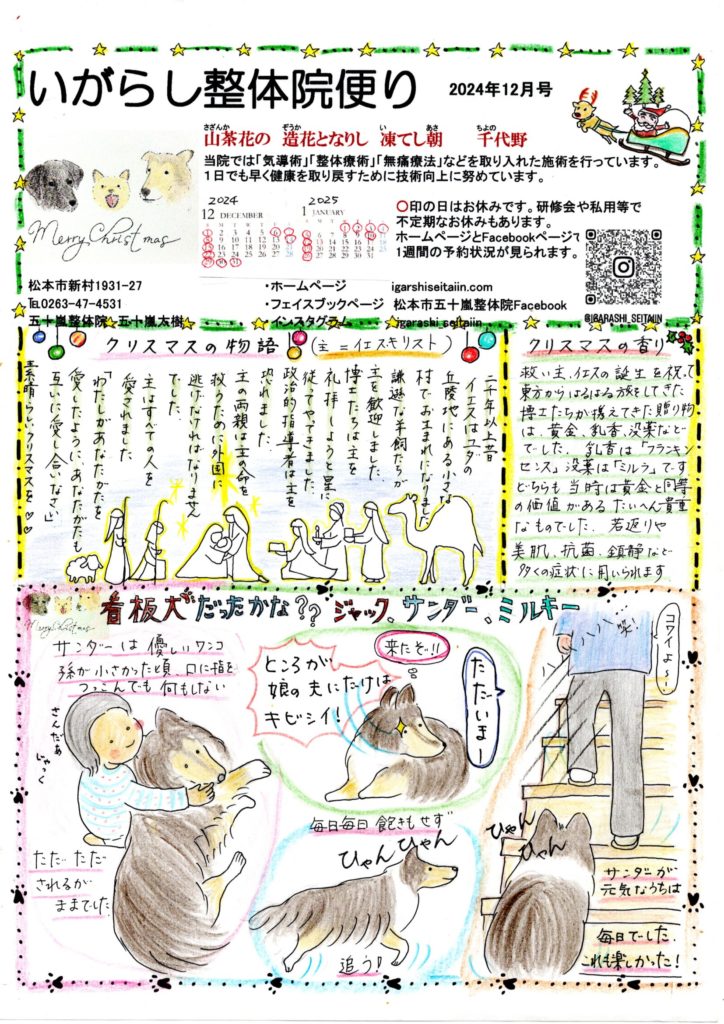 いがらし整体院便り
2024年12月号
さざんか ぞうか い あさ ちよの
山茶花の 造花となりし 凍てし朝 千代野
当院では「気導術」「整体療術」「無痛療法」などを取り入れた施術を行っています。
1日でも早く健康を取り戻すために技術向上に努めています。
Merry Christmas
2024
12 DECEMBER
2025
1 JANUARY
〇印の日はお休みです。研修会や私用等で
不定期なお休みもあります。
ホームページとFacebookページで
1週間の予約状況が見られます。
@IGARASHI_SEITAIIN
松本市新村1931-27
℡0263-47-4531
五十嵐整体院 五十嵐太樹
・ホームページ igarshiseitaiin.com
・フェイスブックページ 松本市五十嵐整体院Facebook
・インスタグラム igarashi_seitaiin
クリスマスの物語 (主=イエスキリスト)
二千年以上昔
イエスはユダの
丘陵地にある小さな
村でお生まれになりました
謙遜な羊飼たちが
主を歓迎しました
博士たちは主を
礼拝しようと星に
従ってやてきました
政治的指導者は主を
恐れました
主の両親は主の命を
救うために外国に
逃げなければなりません
でした。
主はすべての人を
愛されました
「わたしがあなたがたを
愛したようにあなたがたも
互いに愛し合いなさい」
素晴らしいクリスマスを♡♡
クリスマスの香り
救い主、イエスの誕生を祝って
東方からはるばる旅をしてきた
博士たちが携えてきた贈り物
は、黄金、乳香、没薬など
でした。乳香は「フランキン
センス」没薬は「ミルラ」です
どちらも当時は黄金と同等
の価値がある たいへん貴重
なものでした。若返りや
美肌、抗菌、鎮静など
多くの症状に用いられます
Merry Christmas
看板犬だったかな?? ジャック、サンダー、ミルキー
サンダーは優しいワンコ
孫が小さかった頃、口に指を
つっこんでも何もしない
さんだぁ
じゃっく
ただ ただ
されるが
ままでした
ところが
娘の夫にだけは
キビシイ!
来たぞ!!
ただいまー
毎日毎日 飽きもせず
ひゃん ひゃん
追う!
ハハハハハ 笑!
コワイよ〜
ひゃん
ひゃん
サンダーが
元気なうちは
毎日でした
これも楽しかった!